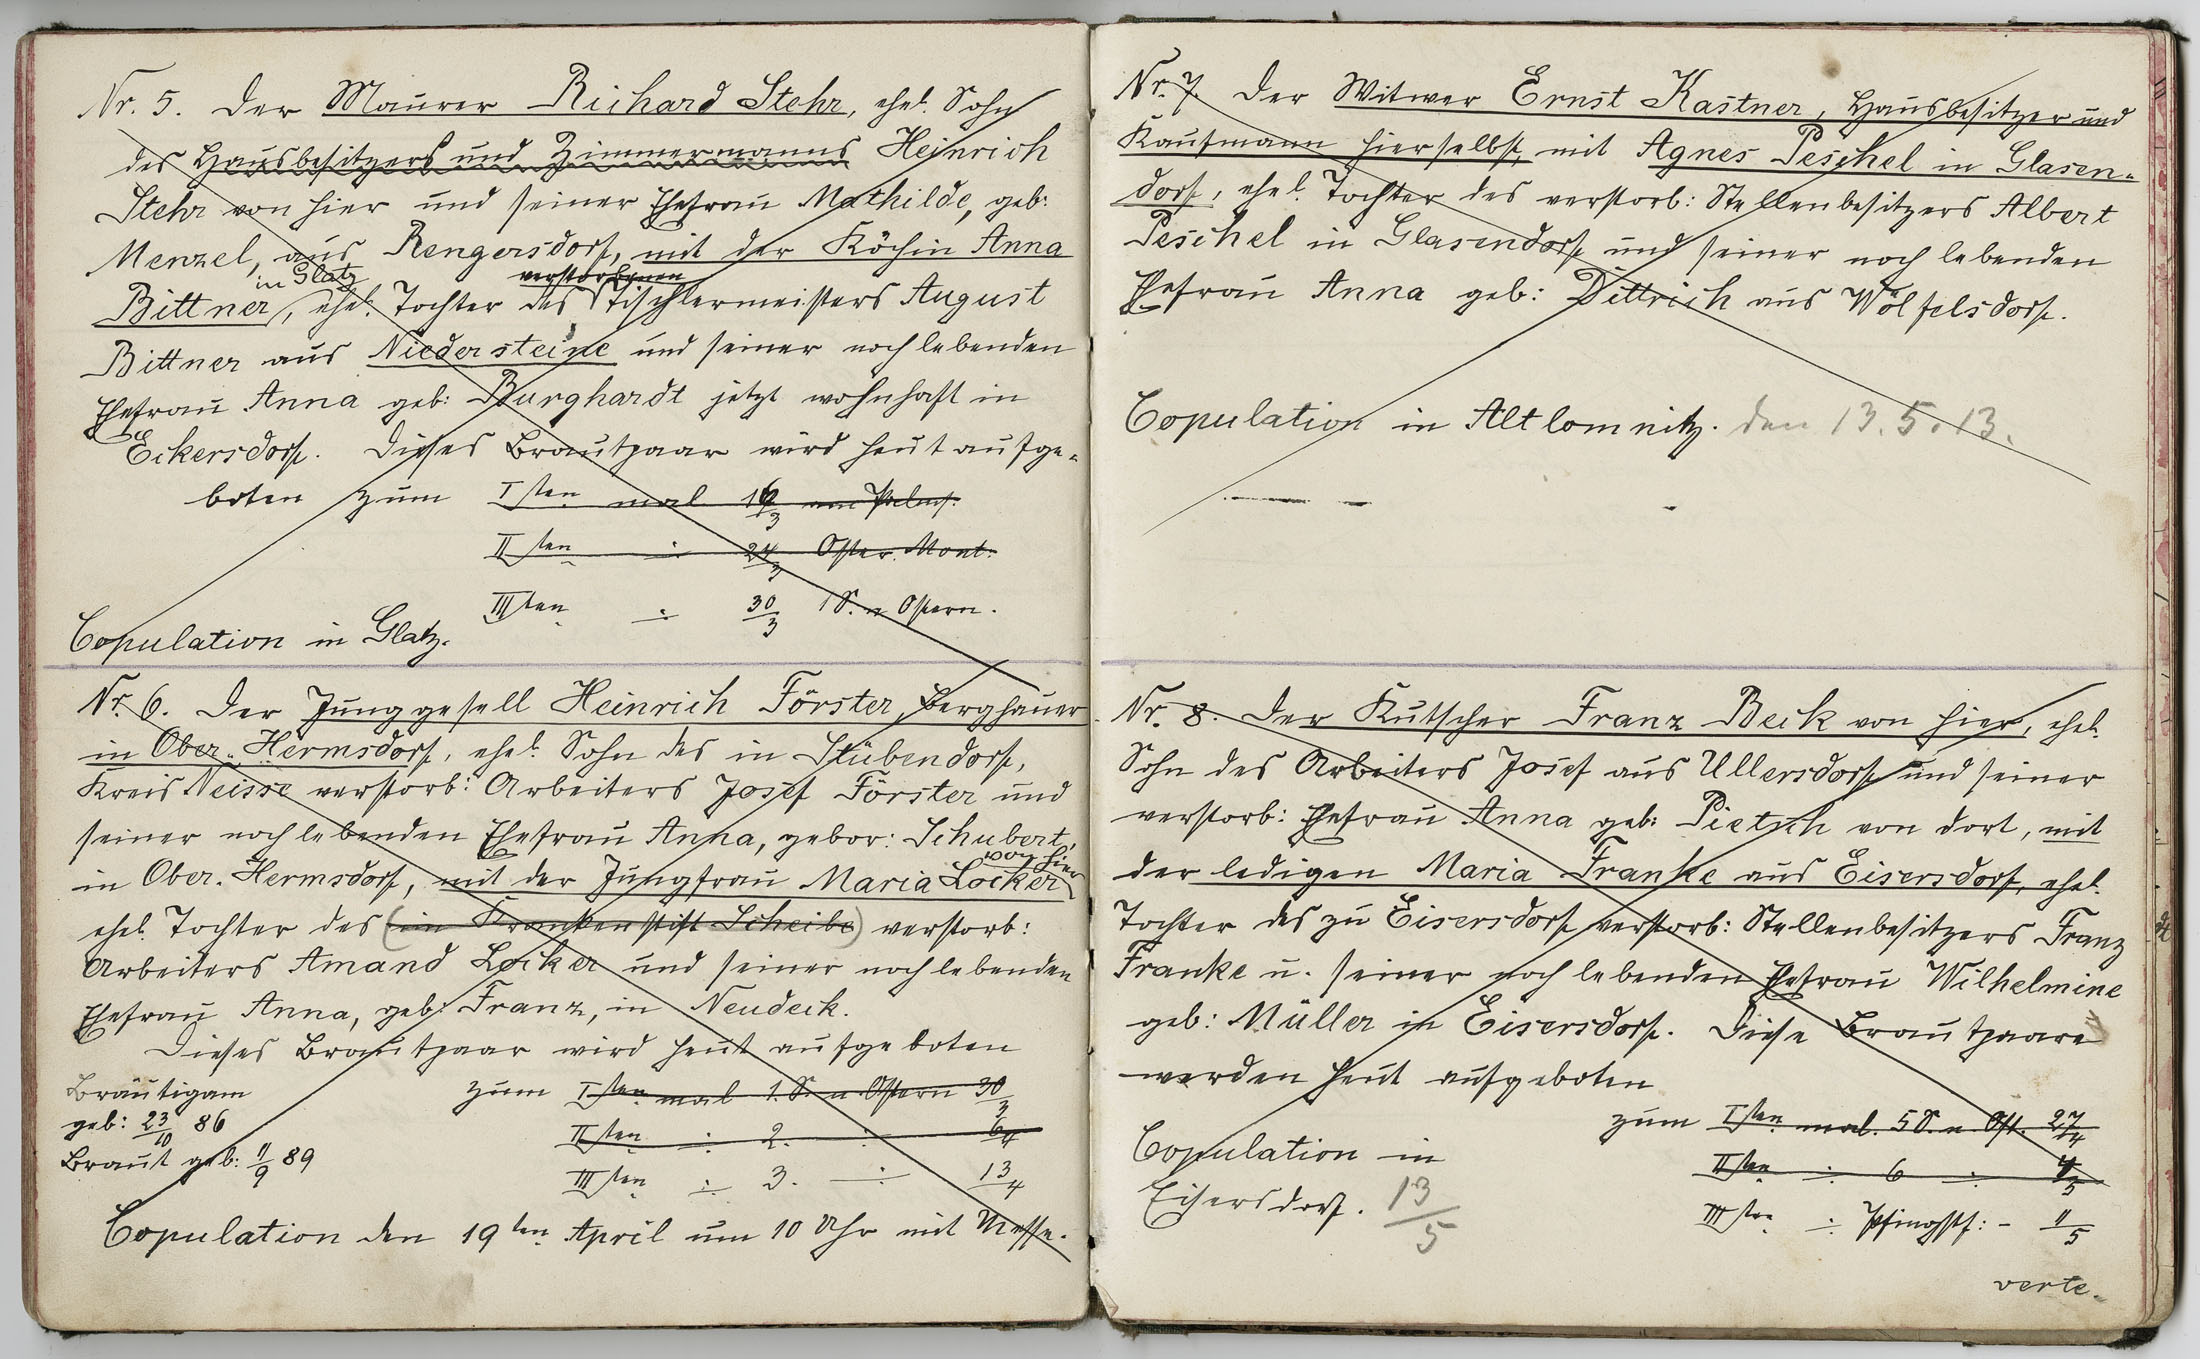 Nr. 5. Der Maurer Richard Stehr, ehel. Sohn
des Hausbesitzers und Zimmermanns Heinrich
Stehr von hier und seiner Ehefrau Mathilde, geb:
Menzel, aus Rengersdorf, mit der Köchin Anna
in Glatz verstorbenen
Bittner, ehel. Tochter des Tischlermeisters August
Bittner aus Niedersteine und seiner noch lebenden
Ehefrau Anna geb: Burghardt jetzt wohnhaft in
Eckersdorf. Dieses Brautpaar wird heut aufge-
boten zum Isten mal 16/3 am Palms.
IIten÷ 24/3 Oster. Mont:
IIIten ÷ 30/3 1 S. n Ostern.
Copulation in Glatz.
Nr. 6. Der Junggesell Heinrich Förster, Berghauer
in Ober-Hermsdorf, ehel. Sohn des in Stübendorf,
Kreis Neisse verstorb: Arbeiters Josef Förster und
seiner noch lebenden Ehefrau Anna, gebor: Schubert,
von hier
in Ober-Hermsdorf, mit der Jungfrau Maria Locker
ehel. Tochter des (in Krankenstift Scheibe) verstorb:
Arbeiters Amand Locker und seiner noch lebenden
Ehefrau Anna, geb: Franz, in Neudeck.
Dieses Brautpaar wird heut aufgeboten
Bräutigam
geb: 23/10 86
Braut geb: 11/9 89
zum Isten mal 1. S. n Ostern 30/3
IIten ÷ 2. ÷ 6/4
IIIten ÷ 3. ÷ 13/4
Copulation den 19ten April um 10 Uhr mit Messe.
Nr. 7. Der Witwer Ernst Kastner, Hausbesitzer und
Kaufmann hierselbst, mit Agnes Peschel in Glasen-
dorf, ehel. Tochter des verstorb: Stellenbesitzers Albert
Peschel in Glasendorf und seiner noch lebenden
Ehefrau Anna geb: Dittrich aus Wölfelsdorf.
Copulation in Altlomnitz. den 13. 5. 13.
Nr. 8. Der Kutscher Franz Beck von hier, ehel.
Sohn des Arbeiters Josef aus Ullersdorf und seiner
verstorb: Ehefrau Anna geb: Pietsch von dort, mit
der ledigen Maria Franke aus Eisersdorf, ehel.
Tochter des zu Eisersdorf verstorb: Stellenbesitzers Franz
Franke u. seiner noch lebenden Ehefrau Wilhelmine
geb: Müller in Eisersdorf. Diese Brautpaare
werden heut aufgeboten
zum Isten mal. 5 S. n. Ost. 27/4
IIten ÷ 6 ÷ 4/5
IIIten ÷ Pfingstf: - 11/5
Copulation in
Eisersdorf. 13/5
verte.